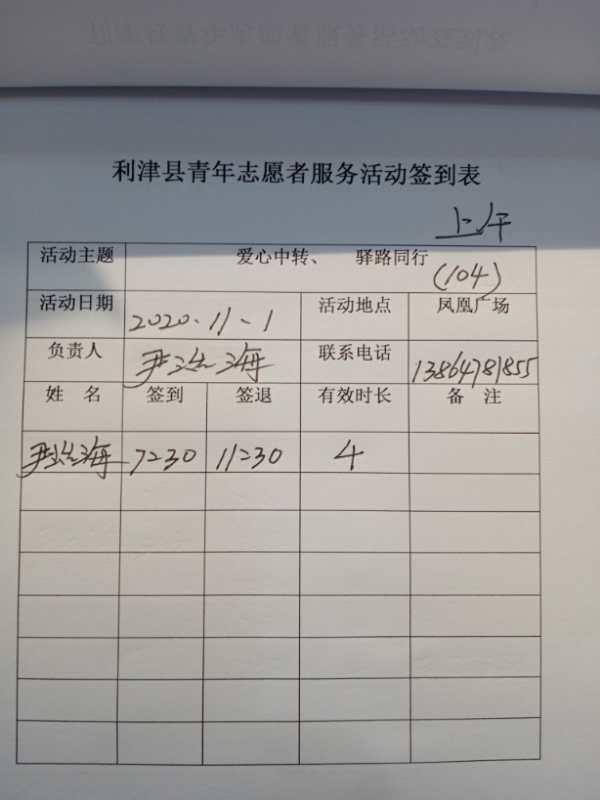 利津县青年志愿者服务活动签到表
上午
活动主题 爱心中转、 驿路同行
(104)
活动日期 2020.11、1 活动地点 凤凰广场
负责人 联系电话 13864781855
姓 名 签到 签退 有效时长 备 注
7=30 11=30 4